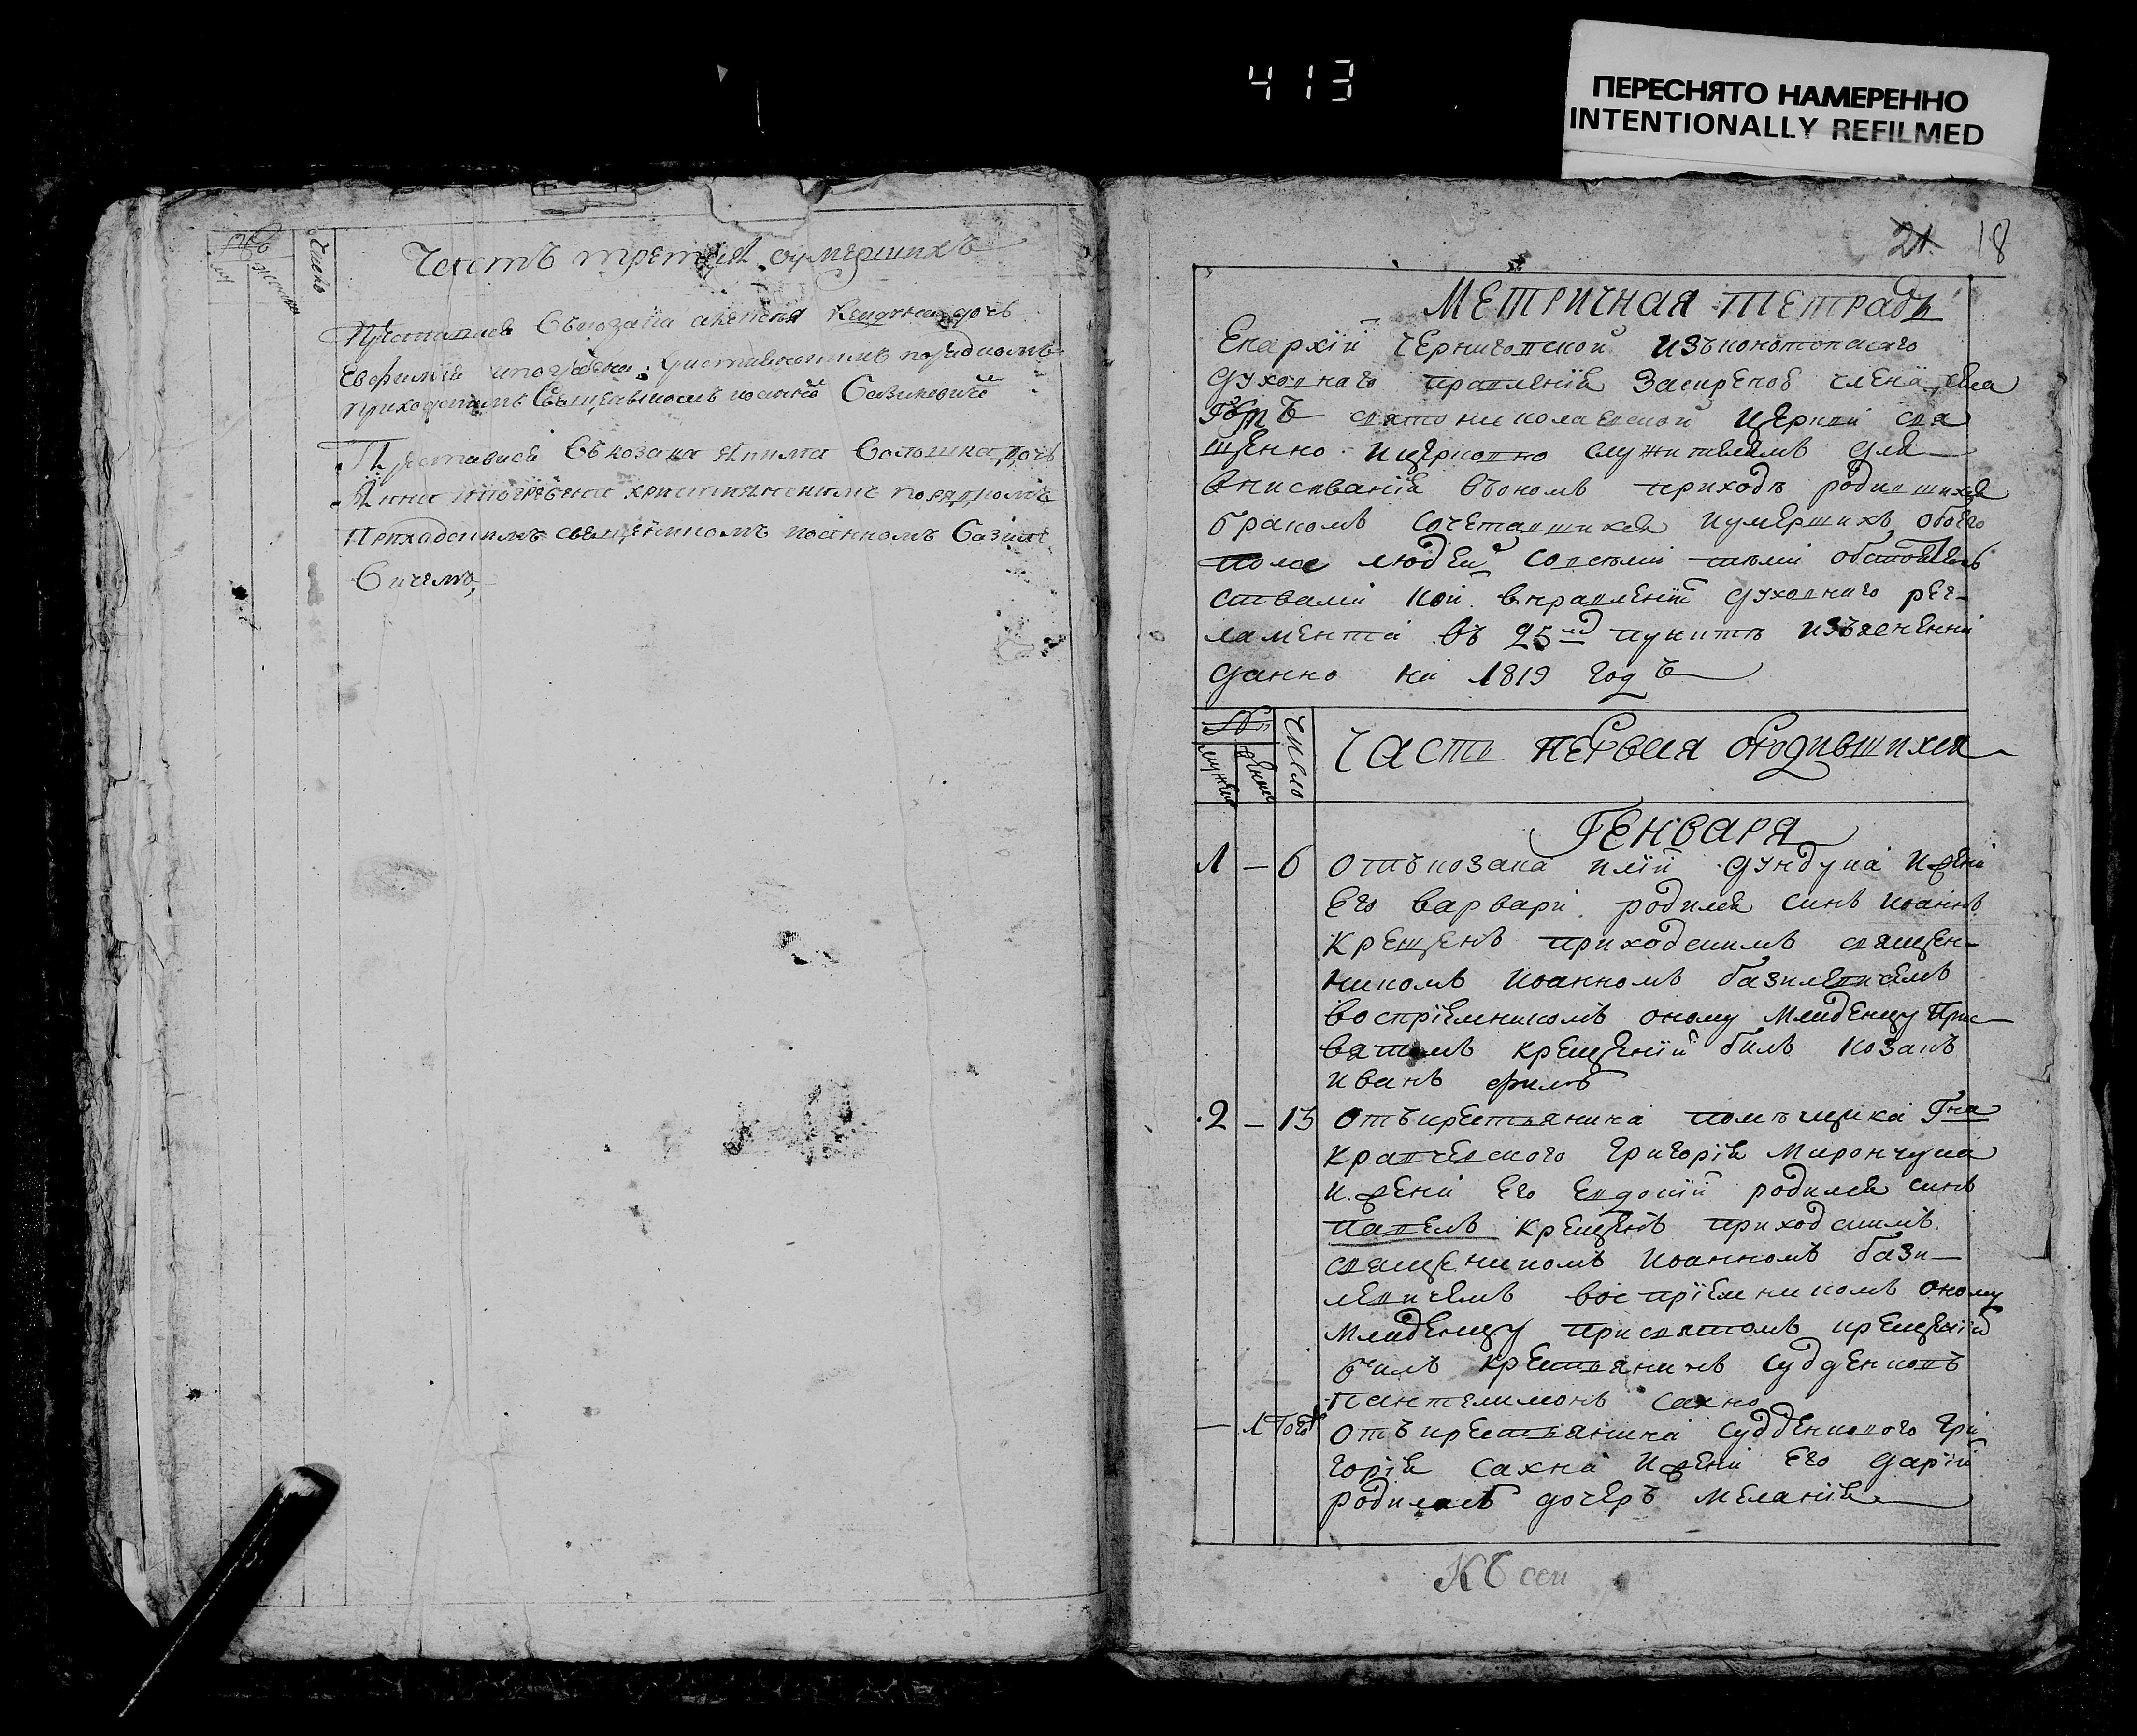 413
ПЕРЕСНЯТО НАМЕРЕННО
INTENTIONALLY REFILMED
№
Число
Часть третия оумершихъ
Преставися Съкозака дочь
Евфимія ипогребена християнскимъ порядкомъ
приходскимъ Священникомъ
Преставися Съкозака Якима Волошина дочь
Анна ипогребена християнскимъ порядкомъ
Приходскимъ священникомъ иоанномъ Базиле
Вичемъ
21 18
Метричная тетрадь
Епархіи черниговской изъконотопского
духовного правленія засирепов члена села
святониколаевской церкви свя
щенно ицерковно служителямъ для
вписиванія въономъ приходѣ родившихся
бракомъ сочетавшихся иумершихъ обоего
пола людей совсѣми тѣми обстоятель
ствами кои вправленіи духовного рег-
ламента въ 25мъ пунктѣ изъяснени
данно на 1819 годъ
№
мужеска
женска
Число
Часть первая ородившихся
Генваря
1 — 6 отъкозака иліи дундука ижени
его варвари родился синъ иоаннъ
крещенъ приходскимъ священ-
никомъ иоанномъ базилевичемъ
воспріемникомъ оному младенцу при
святомъ крещеніи билъ козакъ
иванъ
2 — 13 отъкрестьянина помѣщика Гна
кравчевского григорія мирончука
ижени его евдокіи родился синъ
павелъ крещенъ приходскимъ
священикомъ иоанномъ бази-
левичемъ воспріемникомъ оному
младенцу присвятомъ крещеніи
билъ крестьянинъ судденковъ
пантелимонъ сахно
— 1 Тогож отъкрестьянина судденкового гри
горія сахна ижени его даріи
родилась дочеръ меланія
Къ сей